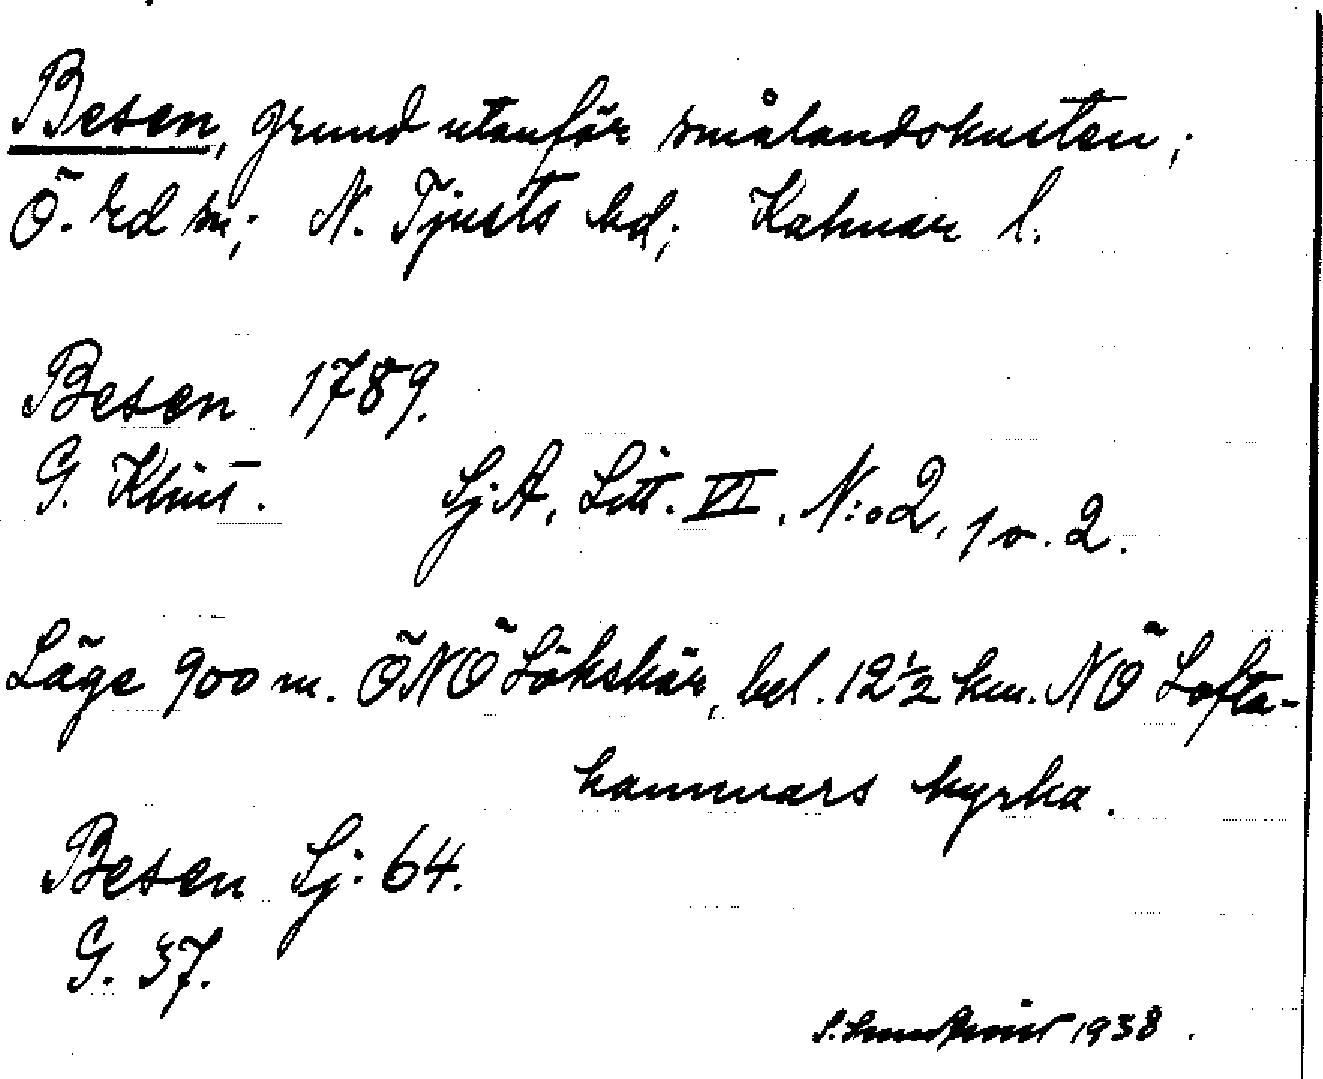 Besen, grund utanför smålandskusten;
Ö. Ed sn; N. Tjusts hd; Kalmar l.
Besen 1789.
G. Klint. Sj A, Litt. VI, N:o 2, 1 o. 2.
Läge 900 m. ÖNÖ Lökskär, bel. 12 1/2 km. NÖ Lofta-
hammars kyrka.
Besen Sj: 64.
G. 37.
1938.